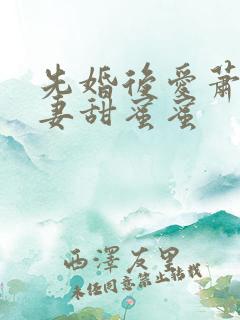 先婚後愛蕭
妻甜蜜蜜
西澤友里
未经同意禁止转载